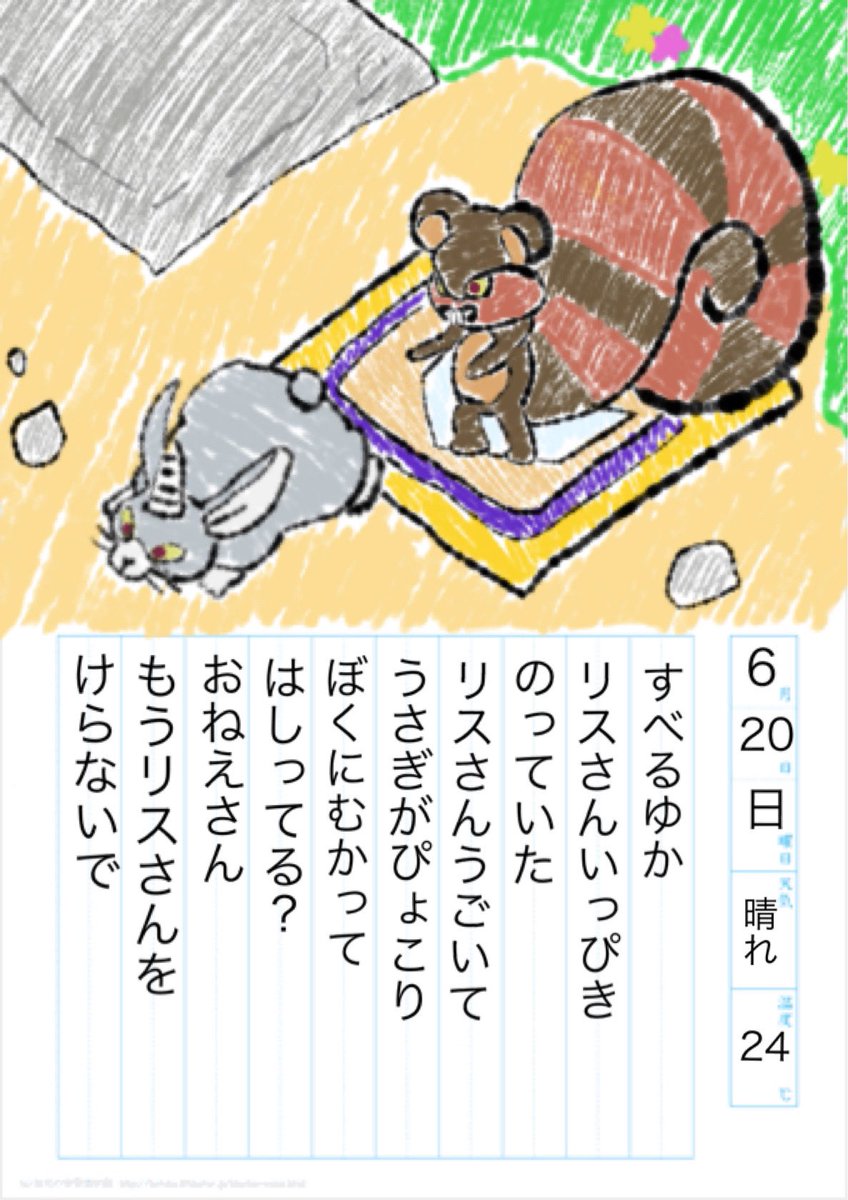 6月
20日
日曜日
天気
晴れ
温度
24℃
すべるゆか
リスさんいっぴき
のっていた
リスさんうごいて
うさぎがぴょこり
ぼくにむかって
はしってる？
おねえさん
もうリスさんを
けらないで